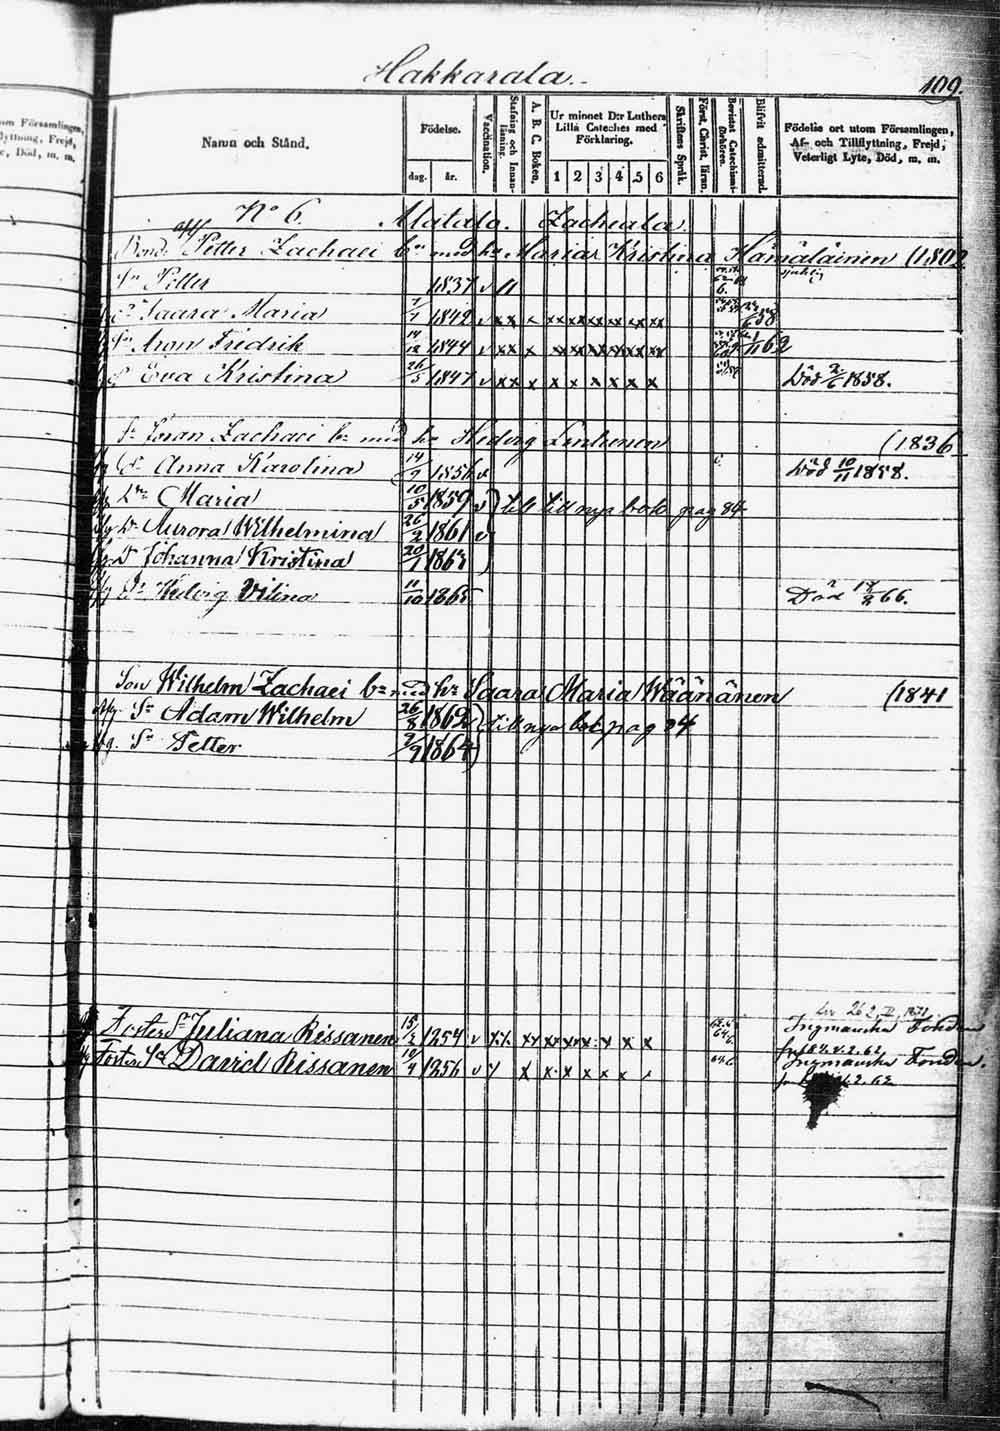 Hakkarala.
109.
Namn och Stånd.
Födelse.
dag.
år.
Vaccination.
Stafning och Innanläsning.
A. B. C. Boken.
Ur minnet D:r Luthers Lilla Cateches med Förklaring.
1 2 3 4 5 6
Skriftens Språk.
Först. Christ. läran.
Bevistat Catechismiförhören.
Blifvit admitterad.
Födelse ort utom Församlingen, Af- och Tillflyttning, Frejd, Veterligt Lyte, Död, m. m.
No 6. Matala. Zacheala
Bond. Petter Zachaei bn med hu Maria Kristina Hämäläinen (1802
Sn Petter 1837 v 11
Dr Saara Maria 1842 v xx x xx xx xx x xx xx
Sn Aron Fredrik 14/12 1844 v xx x xx xx xx xx xx 62
Dr Eva Kristina 26/5 1847 v xx x x x x x x x Död 2/6 1858.
Sn Jöran Zachaei bn med hu Hedvig Lenkunen (1836
Dr Anna Karolina 14/9 1856 v Död 10/11 1858.
Dr Maria 10/5 1859 v till nya bok pag 84
Dr Aurora Wilhelmina 26/2 1861 v
Dr Johanna Kristina 20/1 1863
Dr Hedvig Vilina 11/10 1865 Död 66.
Son Wilhelm Zachaei bn med hu Saara Maria Wäänänen (1841
Sn Adam Wilhelm 26/8 1862 till nya bok pag 84
Sn Petter 2/9 1864
Foster Dr Juliana Rissanen 15/2 1854 v Ingmanska Fonden
Foster Sn David Rissanen 10/4 1856 v Ingmanska Fonden.